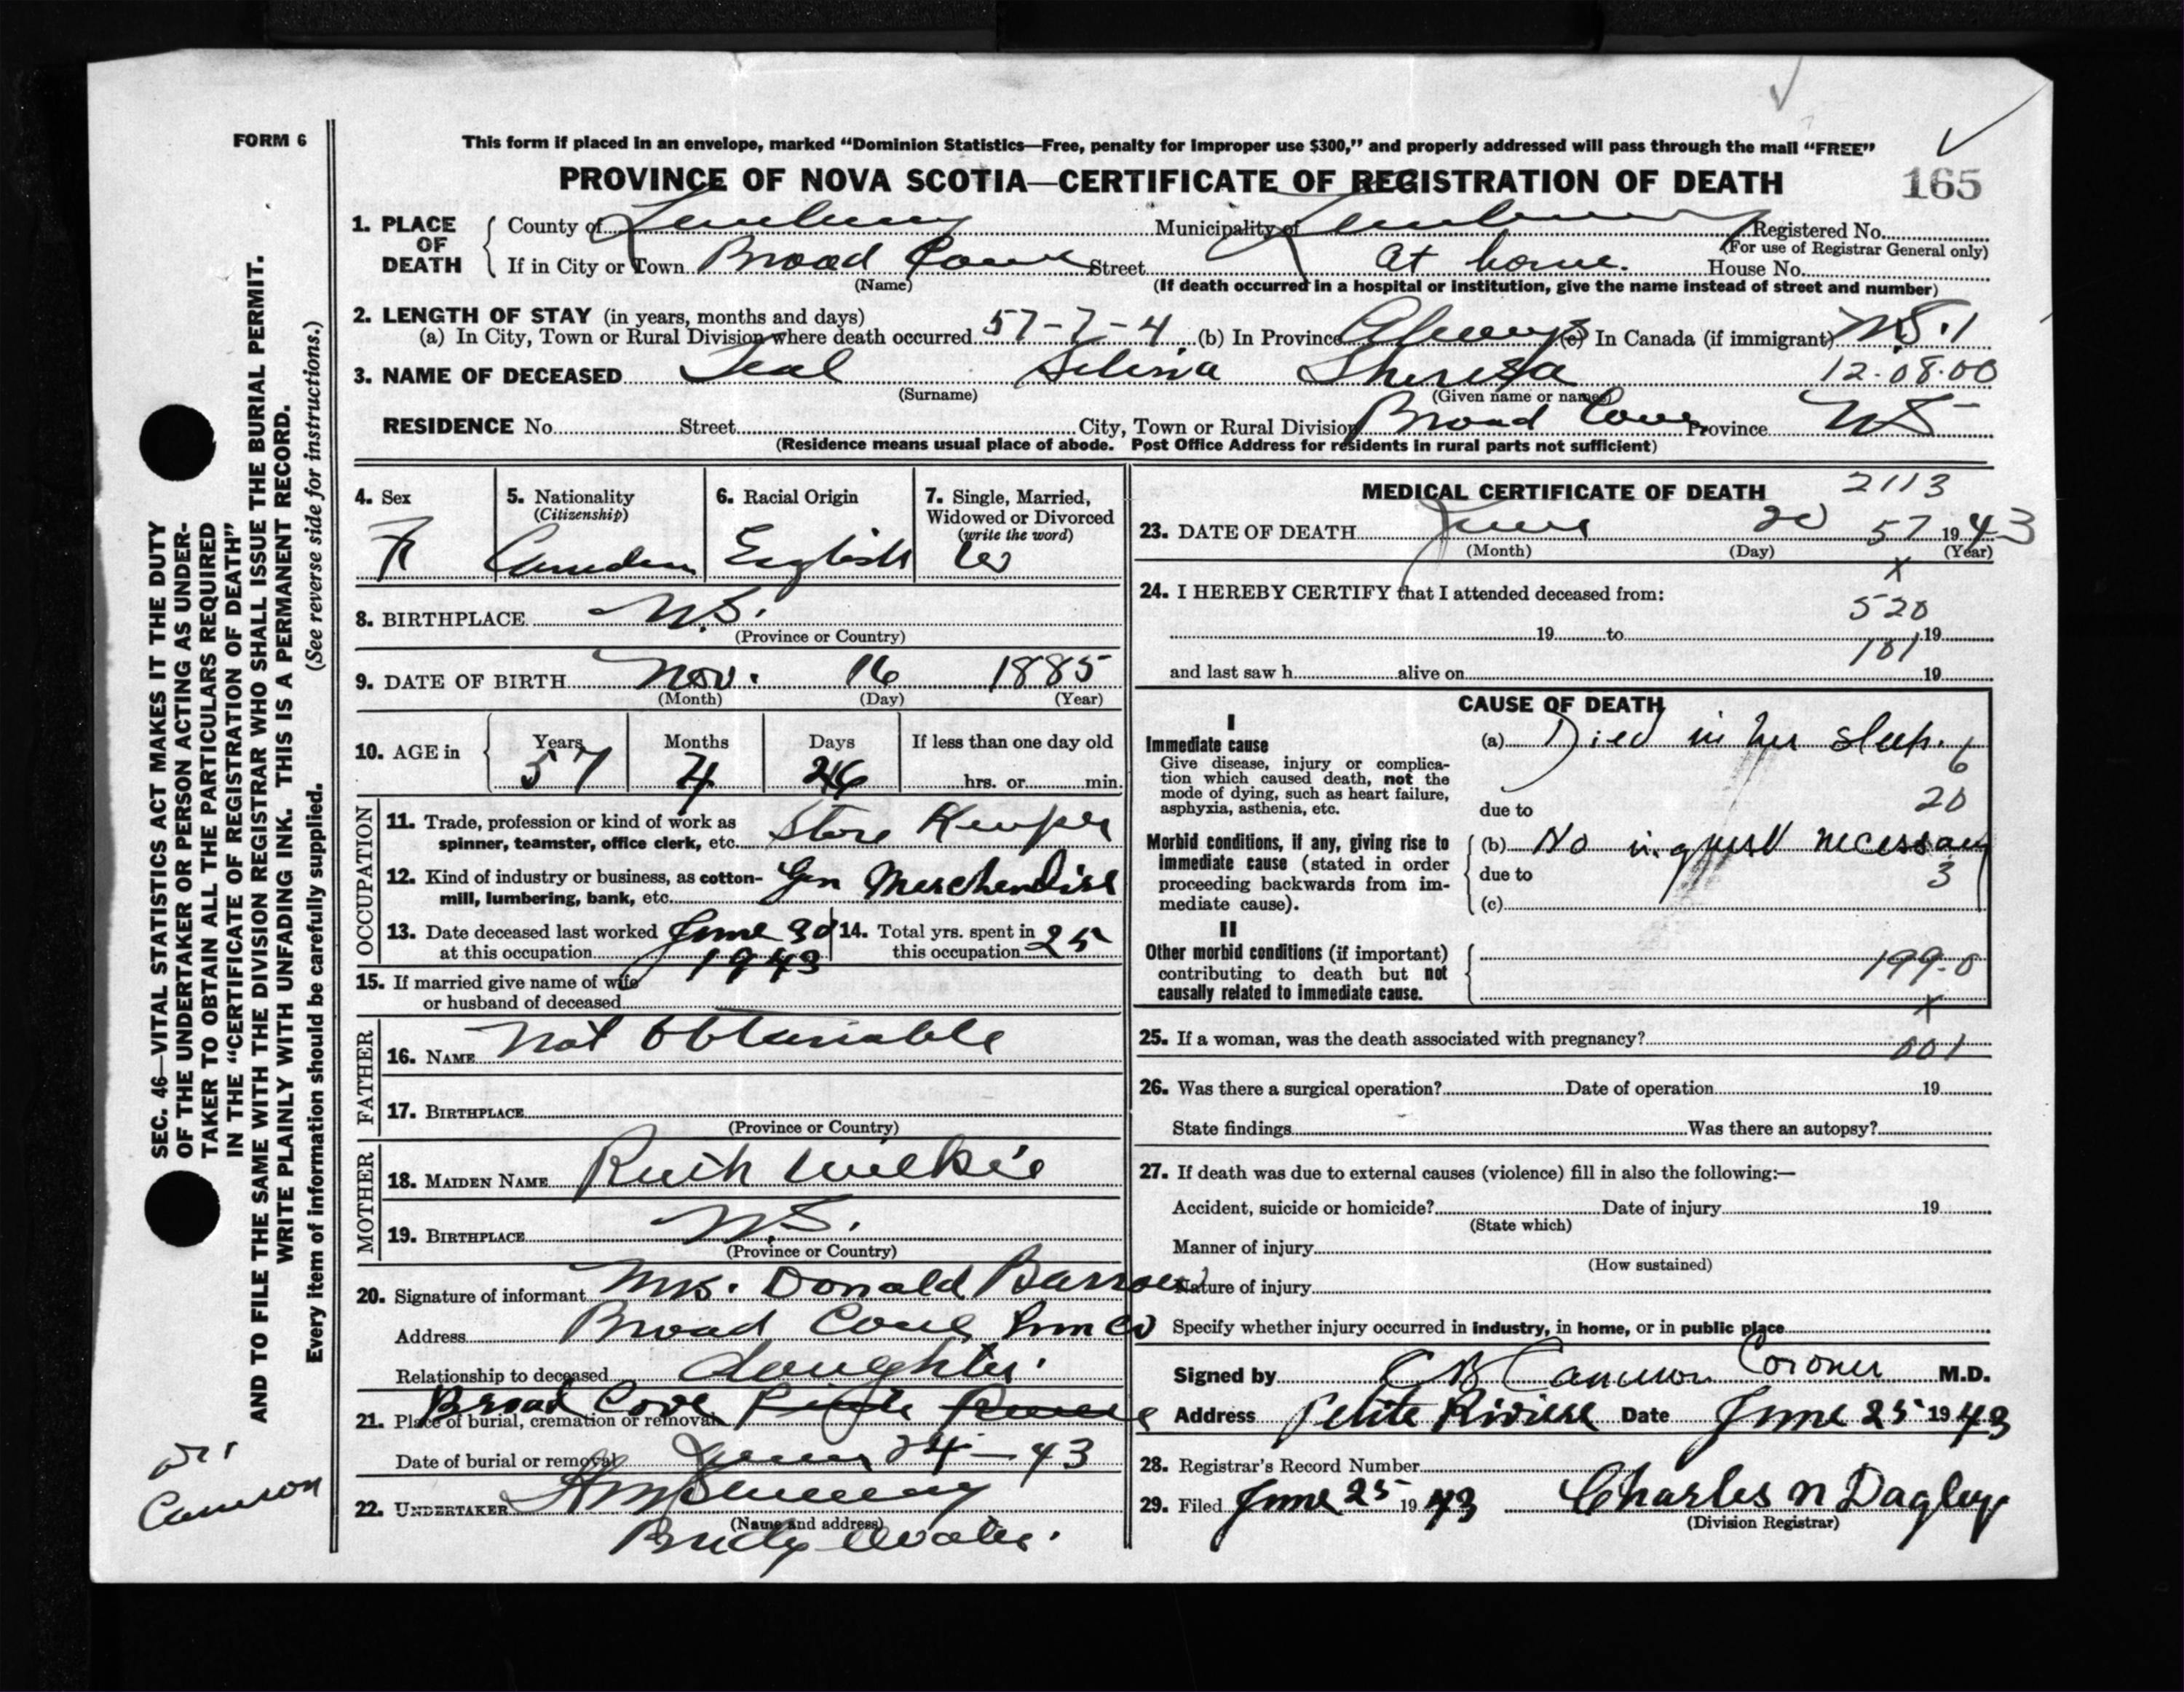 FORM 6
This form if placed in an envelope, marked “Dominion Statistics—Free, penalty for improper use $300,” and properly addressed will pass through the mail “FREE”
PROVINCE OF NOVA SCOTIA—CERTIFICATE OF REGISTRATION OF DEATH
165
1. PLACE OF DEATH
County of Lunenburg Municipality of Lunenburg Registered No.
(For use of Registrar General only)
If in City or Town Broad Cove Street At home. House No.
(Name)
(If death occurred in a hospital or institution, give the name instead of street and number)
2. LENGTH OF STAY (in years, months and days)
(a) In City, Town or Rural Division where death occurred 57-7-4 (b) In Province Always (c) In Canada (if immigrant) N.S.1
3. NAME OF DECEASED Teal Selina Theresa 12.08.00
(Surname) (Given name or names)
RESIDENCE No. Street City, Town or Rural Division Broad Cove Province NS
(Residence means usual place of abode. Post Office Address for residents in rural parts not sufficient)
4. Sex
F
5. Nationality
(Citizenship)
Canadian
6. Racial Origin
English
7. Single, Married, Widowed or Divorced
(write the word)
W
8. BIRTHPLACE N.S.
(Province or Country)
9. DATE OF BIRTH Nov. 16 1885
(Month) (Day) (Year)
10. AGE in
Years Months Days If less than one day old
57 hrs. or min.
OCCUPATION
11. Trade, profession or kind of work as
spinner, teamster, office clerk, etc. Store Keeper
12. Kind of industry or business, as cotton-
mill, lumbering, bank, etc. Gen Merchendise
13. Date deceased last worked
at this occupation June 1943
14. Total yrs. spent in
this occupation 25
15. If married give name of wife
or husband of deceased
FATHER
16. NAME Not Obtainable
17. BIRTHPLACE
(Province or Country)
MOTHER
18. MAIDEN NAME Ruth Wilkie
19. BIRTHPLACE N.S.
(Province or Country)
20. Signature of informant Mrs. Donald
Address Broad Cove Lun Co
Relationship to deceased daughter.
21. Place of burial, cremation or removal Broad Cove
Date of burial or removal June 24-43
22. UNDERTAKER
(Name and address)
Bridgewater.
MEDICAL CERTIFICATE OF DEATH 2113
23. DATE OF DEATH June 20 57 1943
(Month) (Day) (Year)
x
24. I HEREBY CERTIFY that I attended deceased from:
520
19 to 19
101
and last saw h alive on 19
CAUSE OF DEATH
I
Immediate cause
Give disease, injury or complica-
tion which caused death, not the
mode of dying, such as heart failure,
asphyxia, asthenia, etc.
(a) Died in her sleep. 6
20
due to
Morbid conditions, if any, giving rise to
immediate cause (stated in order
proceeding backwards from im-
mediate cause).
(b) No inquest necessary
due to 3
(c)
II
Other morbid conditions (if important)
contributing to death but not
causally related to immediate cause.
199.0
x
25. If a woman, was the death associated with pregnancy? 001
26. Was there a surgical operation? Date of operation 19
State findings Was there an autopsy?
27. If death was due to external causes (violence) fill in also the following:—
Accident, suicide or homicide? Date of injury 19
(State which)
Manner of injury
(How sustained)
Nature of injury
Specify whether injury occurred in industry, in home, or in public place
Signed by C B Cameron Coroner M.D.
Address Petite Riviere Date June 25 1943
28. Registrar's Record Number
29. Filed June 25 1943 Charles N Dagley
(Division Registrar)
SEC. 46—VITAL STATISTICS ACT MAKES IT THE DUTY
OF THE UNDERTAKER OR PERSON ACTING AS UNDER-
TAKER TO OBTAIN ALL THE PARTICULARS REQUIRED
IN THE “CERTIFICATE OF REGISTRATION OF DEATH”
AND TO FILE THE SAME WITH THE DIVISION REGISTRAR WHO SHALL ISSUE THE BURIAL PERMIT.
WRITE PLAINLY WITH UNFADING INK. THIS IS A PERMANENT RECORD.
Every item of information should be carefully supplied. (See reverse side for instructions.)
Dr.
Cameron